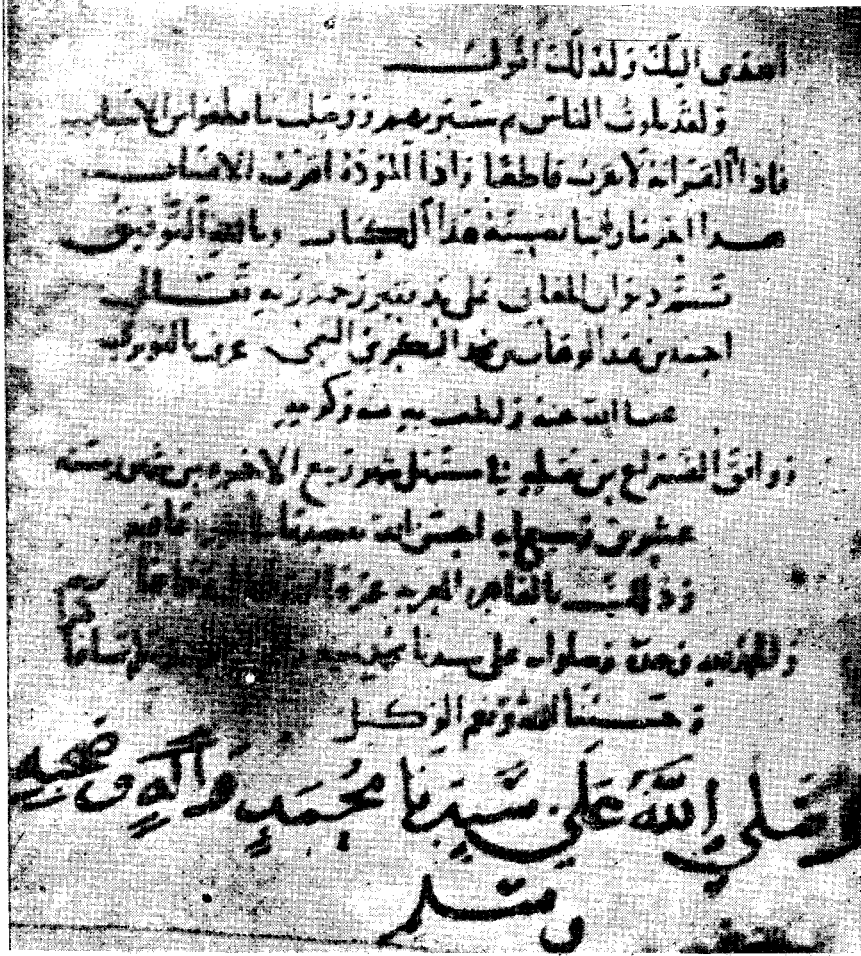 اهدى اليك ولذلك اقول
ولقد بلوت الناس ثم سبرتهم ووصلت ما قطعوا من الاسباب
فاذا القرابة لا تقرب قاطعا واذا المودة اقرب الانساب
هذا اخر ما رتبنا بسببه هذا الكتاب وبالله التوفيق
تم ديوان المعاني على يد فقير رحمة ربه تعالى
احمد بن عبد الوهاب بن محمد البكري التيمي عرف بالنويري
عفا الله عنه ولطف به بمنه وكرمه
ووافق الفراغ من تعليقه في مستهل شهر ربيع الاخر من شهور سنة
عشرين وسبعماية احسن الله
وذلك بالقاهرة المعزية
والحمد لله وحده وصلواته على سيدنا محمد
وحسبنا الله ونعم الوكيل
وصلي الله على سيدنا محمد واله وصحبه
وسلم